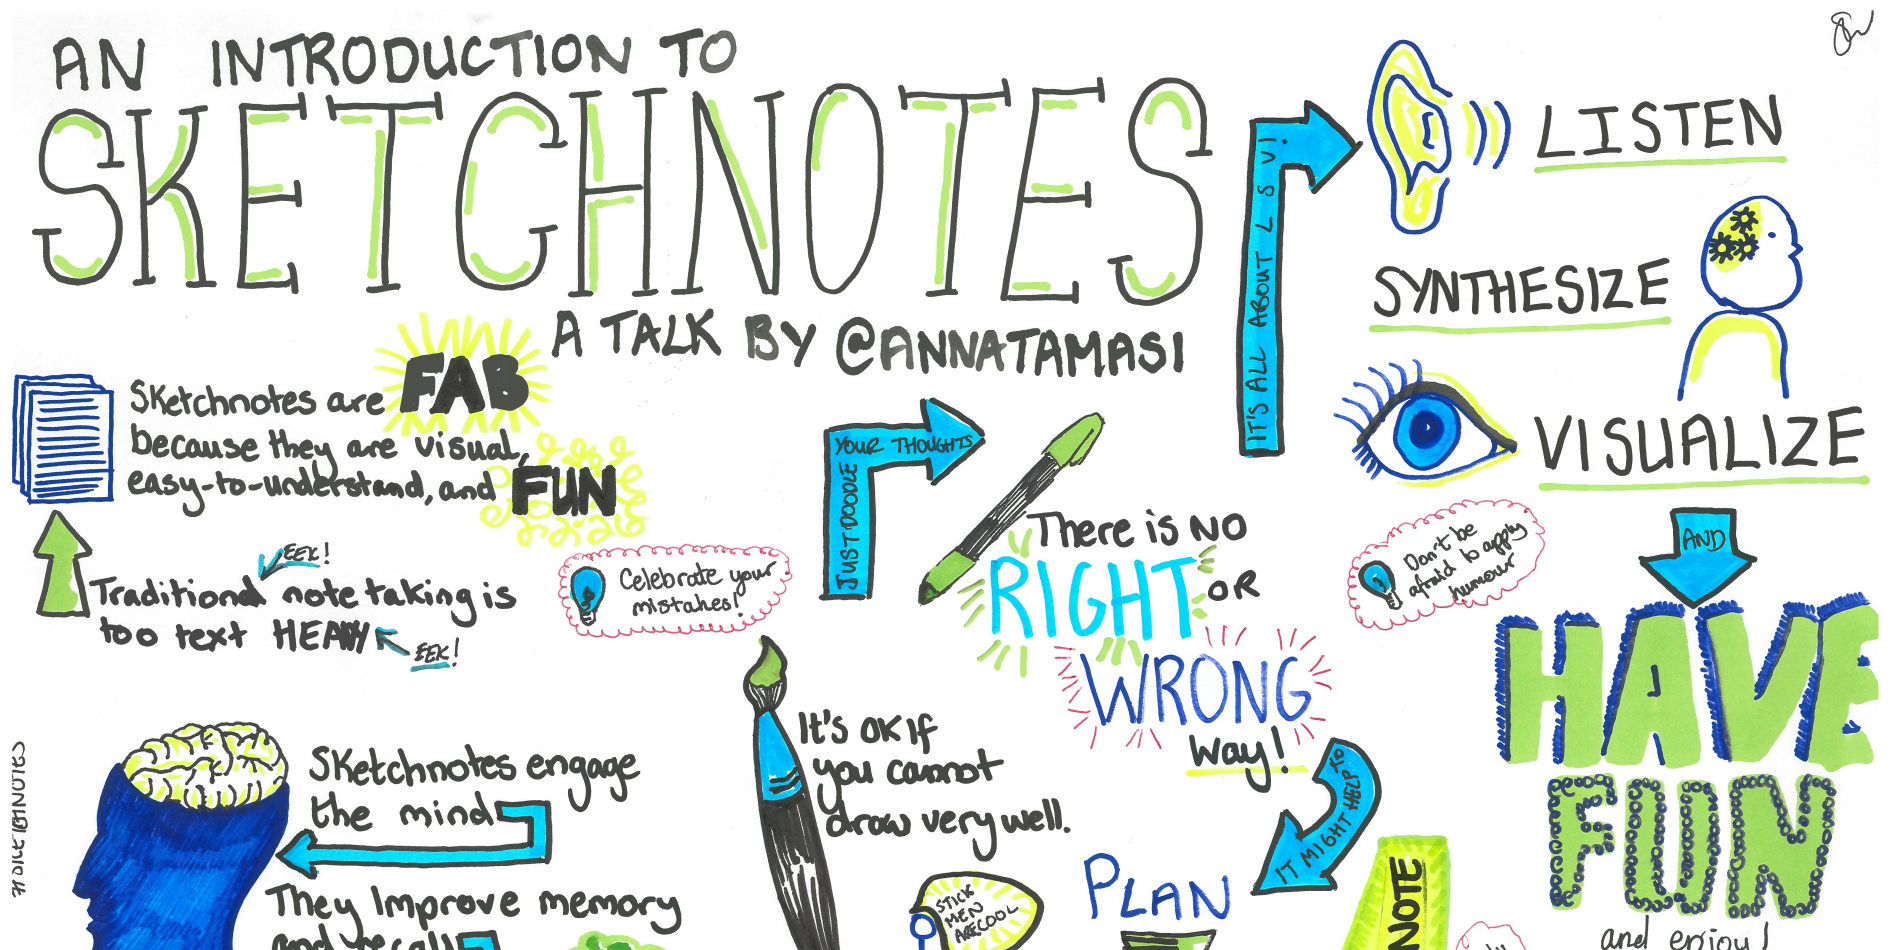 AN INTRODUCTION TO
SKETCHNOTES
A TALK BY @ANNATAMASI
Sketchnotes are FAB
because they are visual,
easy-to-understand, and FUN
EEK!
Traditional note taking is
too text HEAVY
EEK!
Celebrate your
mistakes!
JUST DOODLE
YOUR THOUGHTS
There is NO
RIGHT OR
WRONG
way!
IT'S ALL ABOUT L S V!
LISTEN
SYNTHESIZE
VISUALIZE
Don't be
afraid to apply
humour
AND
HAVE
FUN
and enjoy!
Sketchnotes engage
the mind
They Improve memory
and recall
It's OK if
you cannot
draw very well.
STICK
MEN
ARE COOL
IT MIGHT HELP TO
PLAN
NOTE